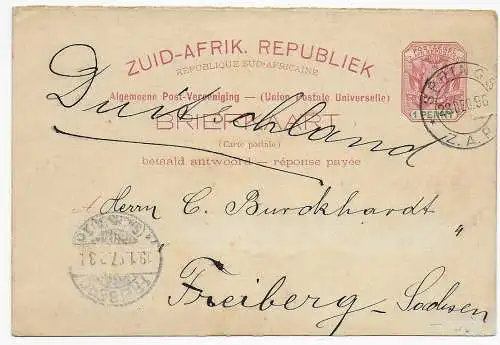 ZUID-AFRIK. REPUBLIEK
RÉPUBLIQUE SUD-AFRICAINE
Algemeene Post-Vereeniging — (Union Postale Universelle)
BRIEFKAART
(Carte postale)
betaald antwoord — réponse payée
1 PENNY
SPRINGS
Z.A.R.
Deutschland
Herrn C. Burckhardt
"
Freiberg - Sachsen